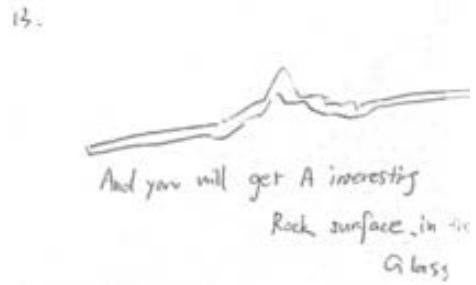 13.
And you will get A interesting
Rock surface in
Glass